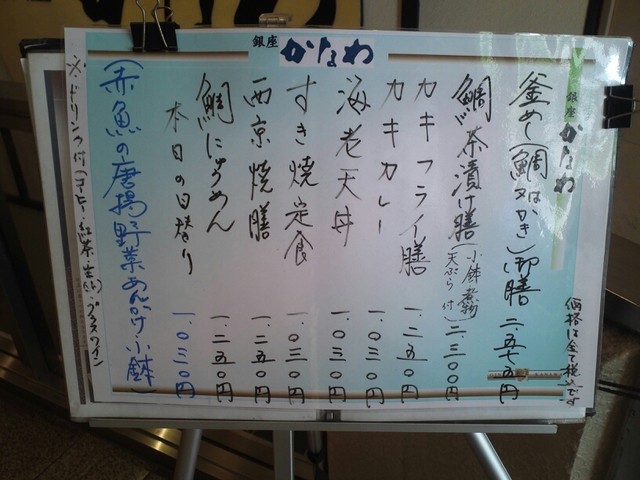 銀座 かなわ
銀座 かなわ
価格は全て税込です
釜めし(鯛又はかき)御膳 二、五七五円
鯛茶漬け膳(小鉢煮物 天ぷら付) 二、三〇〇円
カキフライ膳 一、二五〇円
カキカレー 一、〇三〇円
海老天丼 一、〇三〇円
すき焼定食 一、〇三〇円
西京焼膳 一、二五〇円
鯛にゅうめん 一、二五〇円
本日の日替り 一、〇三〇円
(赤魚の唐揚野菜あんかけ・小鉢)
※ドリンク付(コーヒー・紅茶・生
グラスワイン